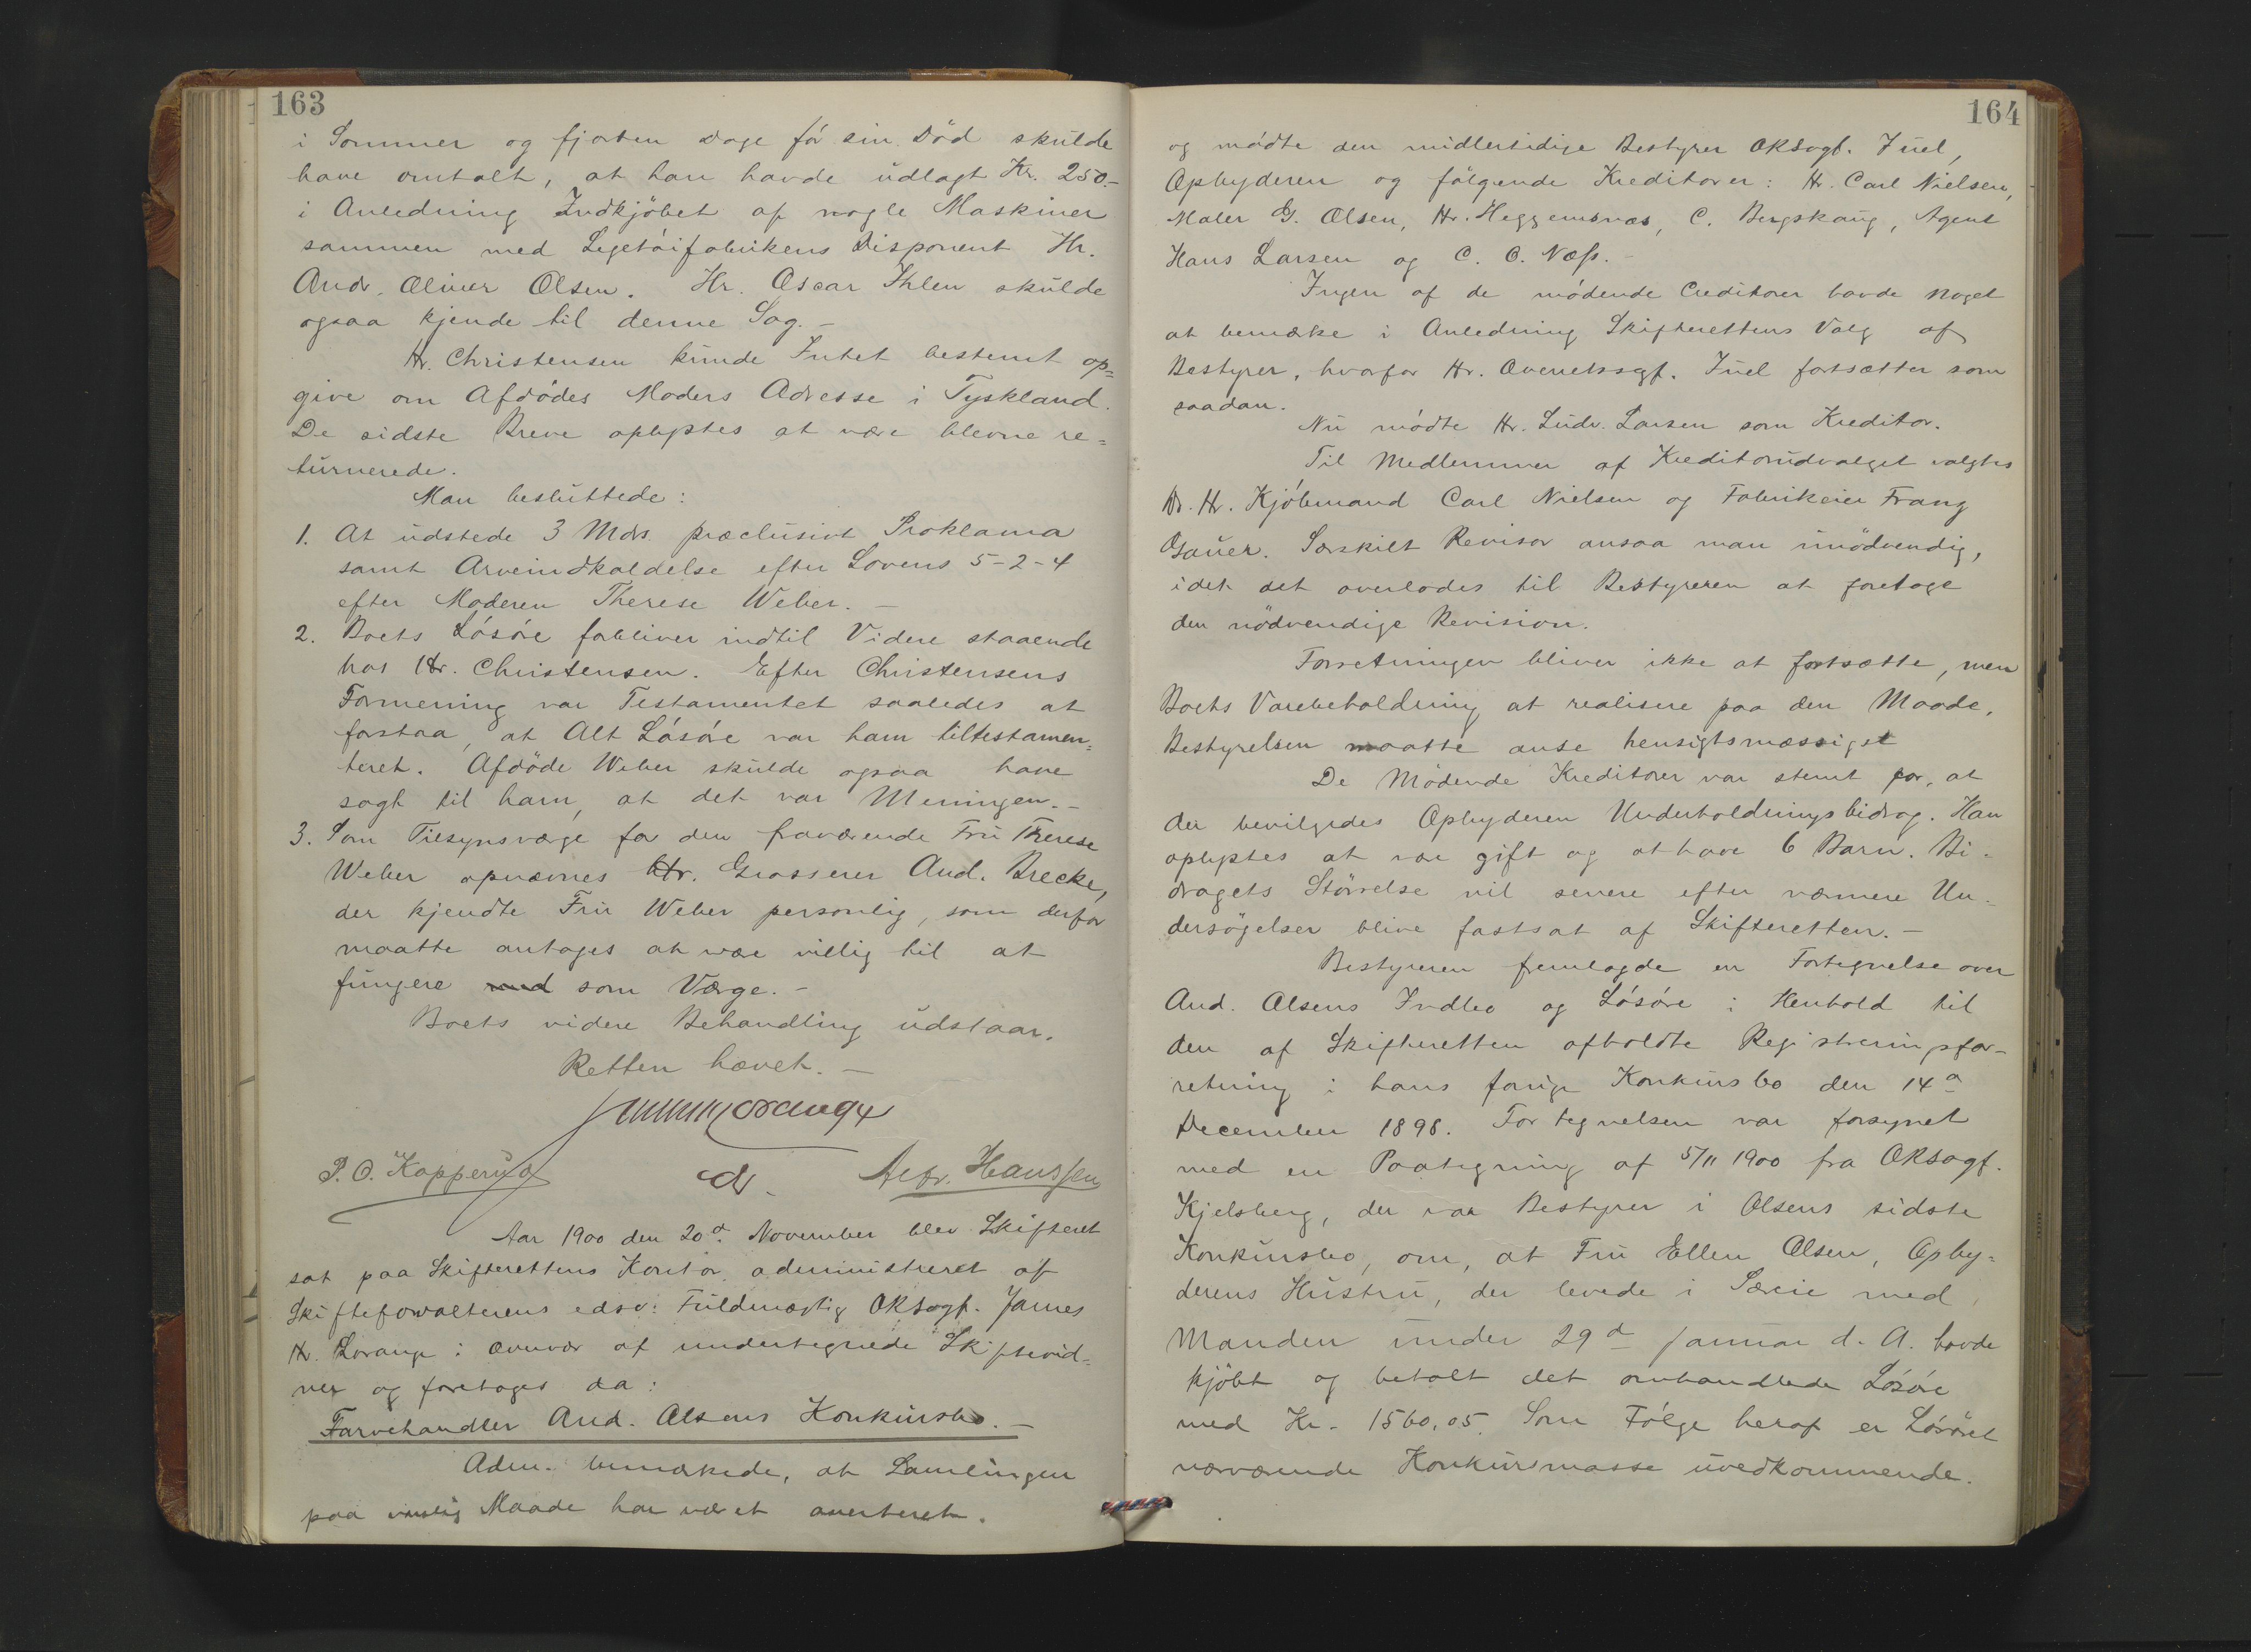 163
i Sommer og fjorten Dage før sin Död skulde
have omtalt, at han havde udlagt Kr. 250.-
i Anledning Indkjöbet af nogle Maskiner
sammen med Legetöifabrikens Disponent Hr.
Andr. Oliver Olsen. Hr. Oscar Ihlen skulde
ogsaa kjende til denne Sag. -
Hr. Christensen kunde Intet bestemt op=
give om Afdödes Moders Adresse i Tyskland.
De sidste Breve oplystes at være blevne re=
turnerede.
Man besluttede:
1. At udstede 3 Mdrs. præclusivt Proklama
samt Arveindkaldelse efter Lovens 5-2-4
efter Moderen Therese Weber. -
2. Boets Lösöre forbliver indtil Videre staaende
hos Hr. Christensen. Efter Christensens
Formening var Testamentet saaledes at
forstaa, at Alt Lösöre var ham tiltestamen=
teret. Afdöde Weber skulde ogsaa have
sagt til ham, at det var Meningen. -
3. Som Tilsynsværge for den fraværende Fru Therese
Weber opnævnes Hr. Grosserer And. Brecke,
der kjendte Fru Weber personlig, som derfor
maatte antages at være villig til at
fungere som Værge. -
Boets videre Behandling udstaar.
Retten hævet. -
P. O. Kopperud
Hanssen
Aar 1900 den 20d. November blev Skifteret
sat paa Skifterettens Kontor, administreret af
Skifteforvalterens edsv: Fuldmægtig OKsagf. James
H. Lorange i Overvær af undertegnede Skiftevid=
ner og foretoges da:
Farvehandler And. Olsens Konkursbo. -
Adm. bemærkede, at Samlingen
paa vanlig Maade har været averteret.
164
og mödte den midlertidige Bestyrer OKsagf. Juel,
Opbyderen og fölgende Kreditorer: Hr. Carl Nielsen,
Maler G. Olsen, Hr. Heggemsnæs, C. Bergskaug, Agent
Hans Larsen og C. O. Næss. -
Ingen af de mödende Creditorer havde noget
at bemærke i Anledning Skifterettens Valg af
Bestyrer, hvorfor Hr. Overretssgf. Juel fortsætter som
saadan.
Nu mödte Hr. Ludv. Larsen som Kreditor.
Til Medlemmer af Kreditorudvalget valgtes
Dr. Hr. Kjöbmand Carl Nielsen og Fabrikeier Franz
Gauer. Særskilt Revisor ansaa man unödvendig,
idet det overlodes til Bestyreren at foretage
den nödvendige Revision.
Forretningen bliver ikke at fortsætte, men
Boets Varebeholdning at realisere paa den Maade,
Bestyrelsen maatte anse hensigtsmæssigst
De Mödende Kreditorer var stemt for, at
der bevilgedes Opbyderen Underholdningsbidrag. Han
oplystes at være gift og at have 6 Barn. Bi-
dragets Störrelse vil senere efter nærmere Un-
dersögelser blive fastsat af Skifteretten. -
Bestyreren fremlagde en Fortegnelse over
And. Olsens Indbo og Lösöre i Henhold til
den af Skifteretten afholdte Registreringsfor-
retning i hans forrige Konkursbo den 14d
December 1898. Fortegnelsen var forsynet
med en Paategning af 5/11 1900 fra OKsagf.
Kjelsberg, der var Bestyrer i Olsens sidste
Konkursbo, om, at Fru Ellen Olsen, Opby=
derens Hustru, der levede i Særeie med
Manden under 29d Januar d. A. havde
kjöbt og betalt det omhandlede Lösöre
med Kr. 1560,05. Som Fölge heraf er Lösöret
nærværende Konkursmasse uvedkommende.